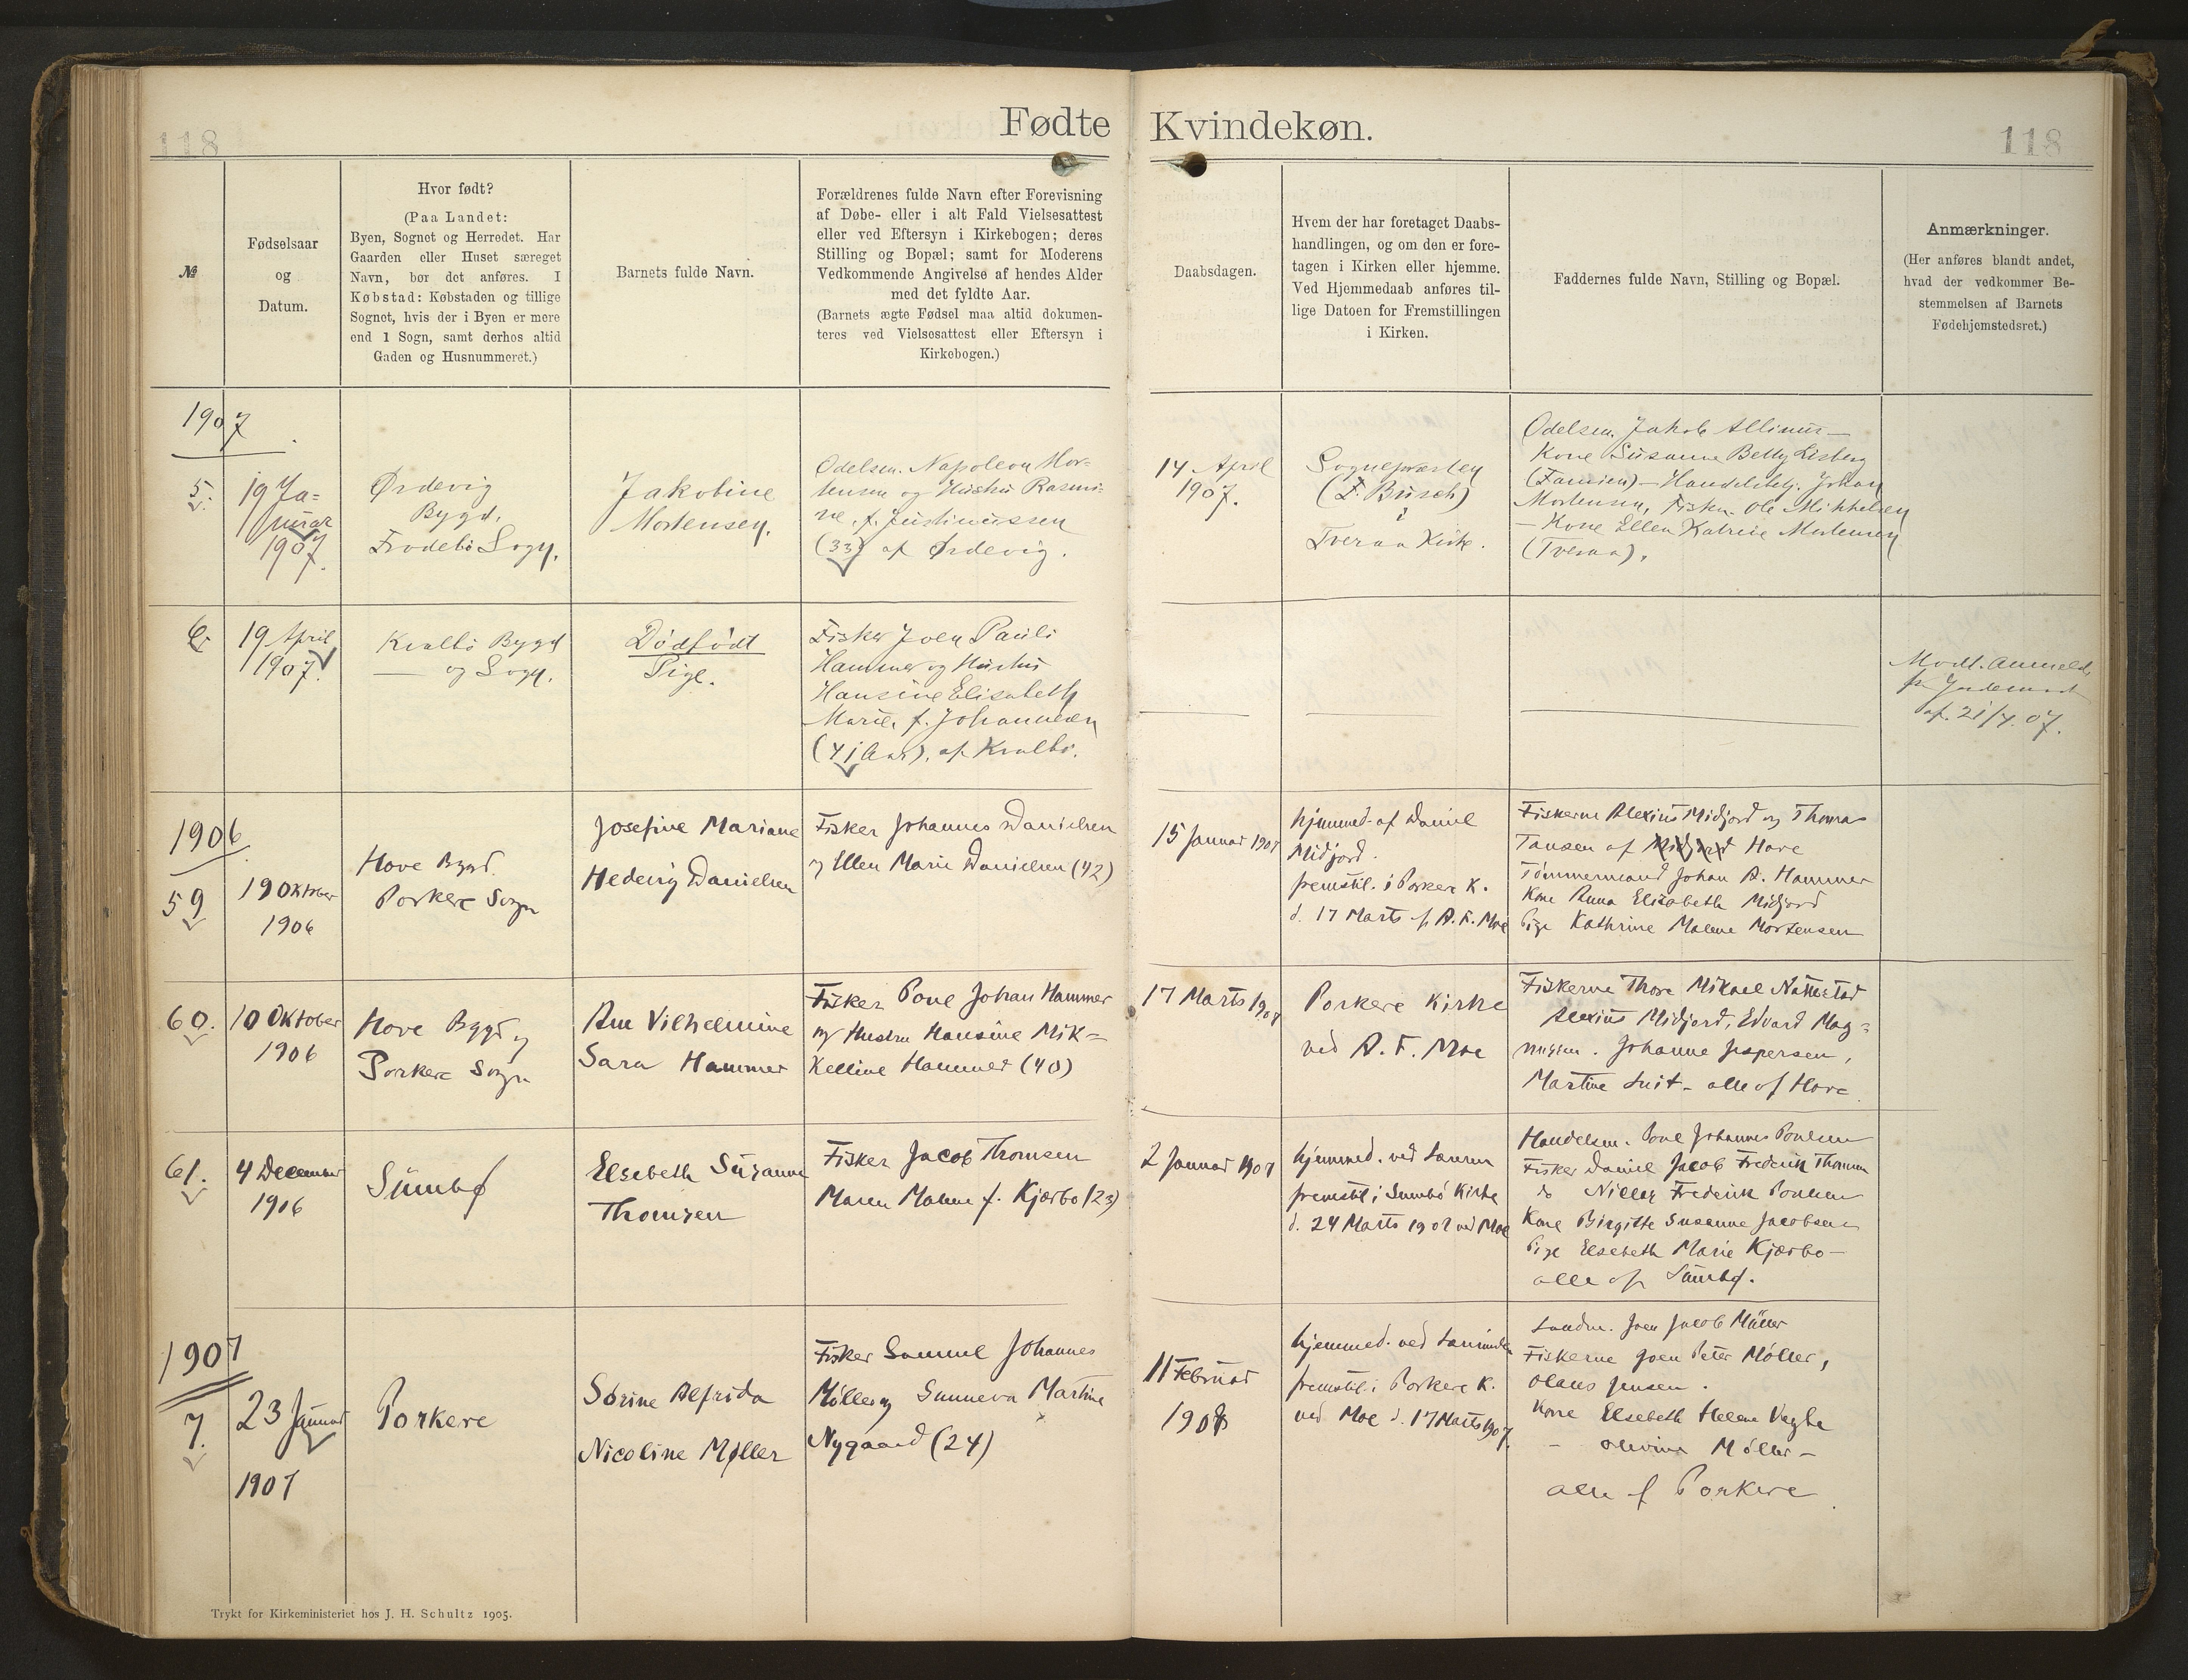 118
Fødte
Kvindekøn.
118
№
Fødselsaar
og
Datum.
Hvor født?
(Paa Landet:
Byen, Sognet og Herredet. Har
Gaarden eller Huset særeget
Navn, bør det anføres. I
Købstad: Købstaden og tillige
Sognet, hvis der i Byen er mere
end 1 Sogn, samt derhos altid
Gaden og Husnummeret.)
Barnets fulde Navn.
Forældrenes fulde Navn efter Forevisning
af Døbe- eller i alt Fald Vielsesattest
eller ved Eftersyn i Kirkebogen; deres
Stilling og Bopæl; samt for Moderens
Vedkommende Angivelse af hendes Alder
med det fyldte Aar.
(Barnets ægte Fødsel maa altid dokumen-
teres ved Vielsesattest eller Eftersyn i
Kirkebogen.)
Daabsdagen.
Hvem der har foretaget Daabs-
handlingen, og om den er fore-
tagen i Kirken eller hjemme.
Ved Hjemmedaab anføres til-
lige Datoen for Fremstillingen
i Kirken.
Faddernes fulde Navn, Stilling og Bopæl.
Anmærkninger.
(Her anføres blandt andet,
hvad der vedkommer Be-
stemmelsen af Barnets
Fødehjemstedsret.)
1907
5.
19 Ja-
nuar
1907.
Ørdevig
Bygd,
Frodebö Sogn.
Jakobine
Mortensen.
Odelsm. Napoleon Mor-
tensen og Hustru Rasmi-
ne, f. Justinussen
(33) af Ørdevig.
14 April
1907.
Sognepræsten
(F. Busch)
i
Tveraa Kirke.
Odelsm. Jakob
Kone Susanne Betty Lisberg
(Famien) – Johan
Mortensen, Fisker Ole Mikkelsen
– Kone Ellen Katrine Mortensen
(Tveraa).
6.
19 April
1907.
Kvalbö Bygd
og Sogn.
Dödfödt
Pige.
Fisker Joen Pauli
Hammer og Hustru
Hansine Elisabeth
Marie, f. Johannesen
(41 Aar), af Kvalbö.
Modt. Anmeld.
fra Jordemod
af 21/4.07.
1906.
59
19 Oktober
1906
Hove Bygd.
Porkere Sogn
Josefine Mariane
Hedevig Danielsen
Fisker Johannes Danielsen
og Ellen Marie Danielsen (42)
15 Januar 1907
hjemmed. af Daniel
Midjord.
fremstil. i Porkere K.
d. 17 Marts f. A. F. Moe
Fiskerne Alexius Midjord og Thomas
Tausen af Hove
Tömmermand Johan A. Hammer
Kone Anna Elisabeth Midjord
Pige Kathrine Malene Mortensen
60.
10 Oktober
1906
Hove Bygd og
Porkere Sogn
Ane Vilhelmine
Sara Hammer
Fisker Poul Johan Hammer
og Hustru Hansine Mik=
kelline Hammer (40)
17 Marts 1907
Porkere Kirke
ved A. F. Moe
Fiskerne Thore Mikael Nattestad
Alexius Midjord, Edvard Mag=
nussen. Johanne Jespersen,
Martine – alle af Hove
61.
4 December
1906
Sumbø
Elsebeth Susanne
Thomsen
Fisker Jacob Thomsen
Maren Malene f. Kjærbo (23)
2 Januar 1907
hjemmed. ved Læreren
fremstil i Sumbö Kirke
d. 24 Marts 1907 ved Moe
Handelsm. Poul Johannes Poulsen
Fisker Daniel Jacob Frederik Thomsen
do Frederik Poulsen
Kone Birgitte Susanne Jacobsen
Pige Elsebeth Marie Kjærbo –
alle af Sumbø.
1907
7.
23 Januar
1907
Porkere
Sörine Alfrida
Nicoline Møller
Fisker Samuel Johannes
Møller og Sunneva Martine
Nygaard (24)
11 Februar
1907
hjemmed. ved
fremstil. i Porkere K.
ved Moe d. 17 Marts 1907.
Landm. Joen Jacob Müller
Fiskerne Joen Peter Møller,
Olaus Jensen.
Kone Elsebeth Helene Vaghe
– Olevine Möller –
alle af Porkere
Trykt for Kirkeministeriet hos J. H. Schultz 1905.